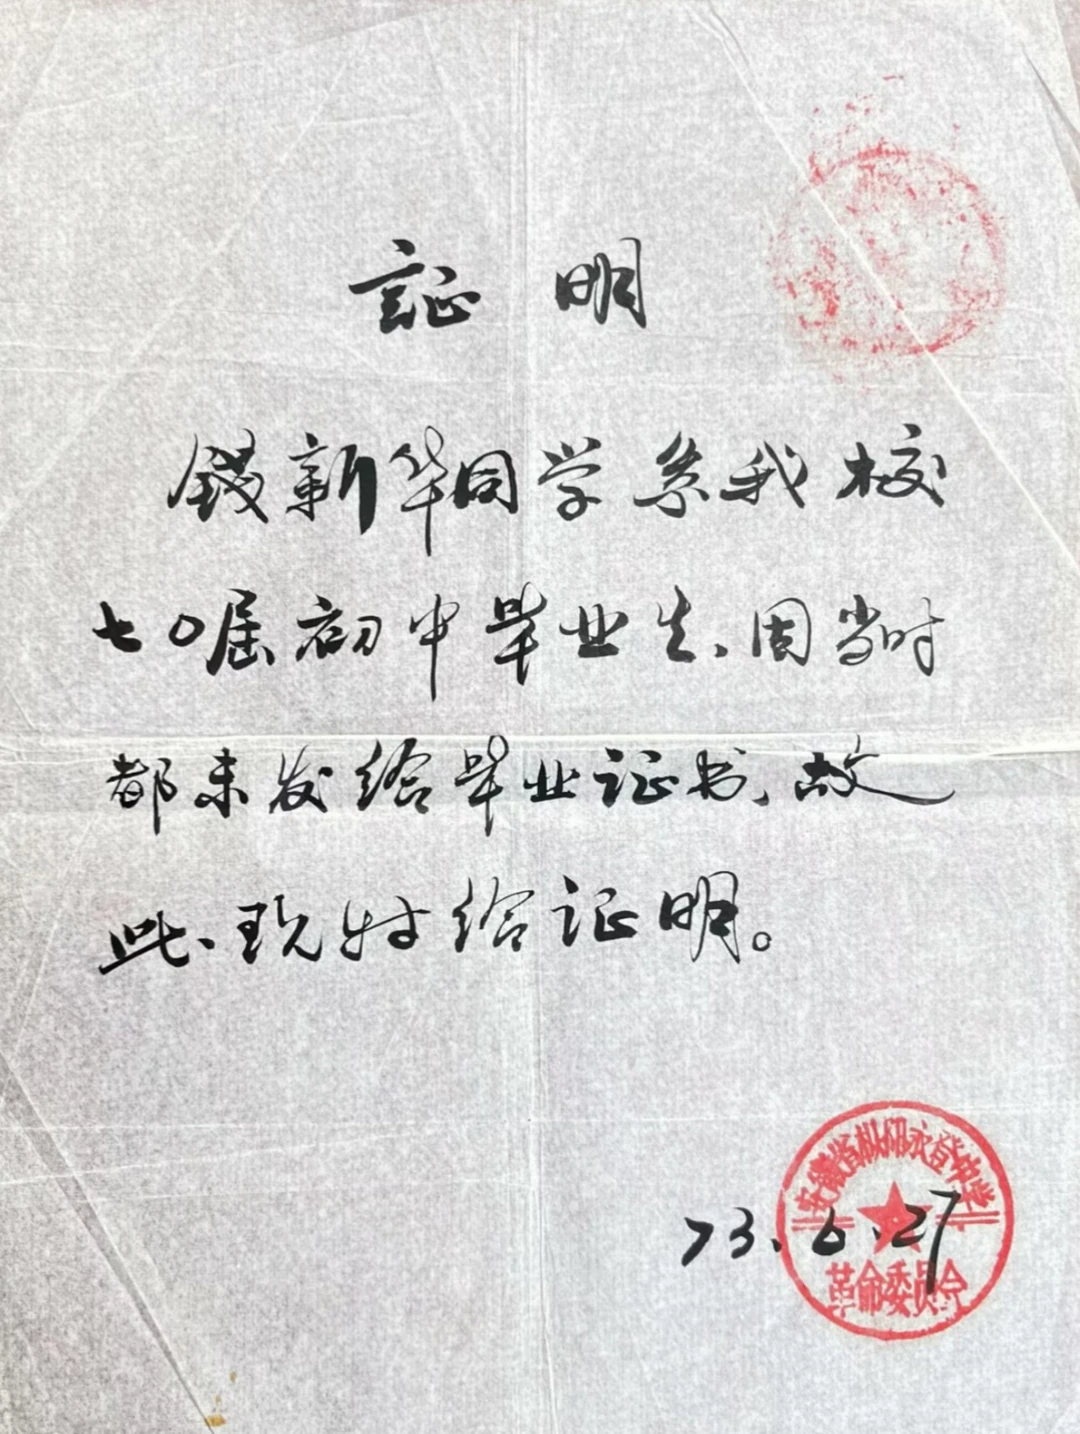 証明
錢新华同学系我校
七〇届初中毕业生、因当时
都未发给毕业证书、故
此、现特给证明。
安徽省枞阳永登中学
73.6.27
革命委员会